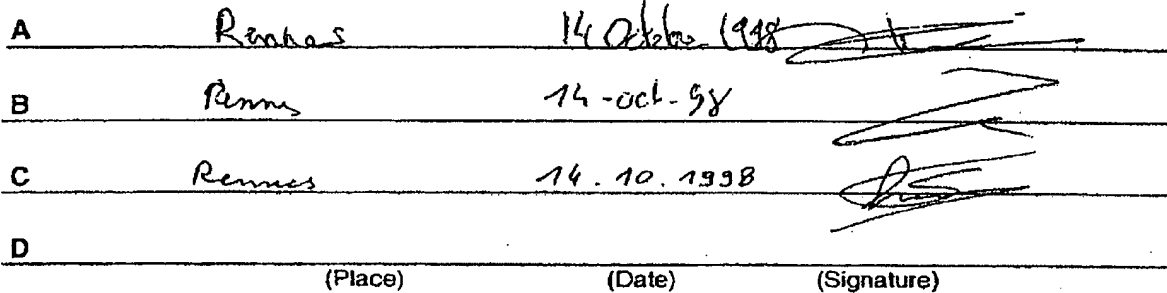 A 14 October 1998
B Rennes 14-oct-98
C Rennes 14.10.1998
D
(Place) (Date) (Signature)